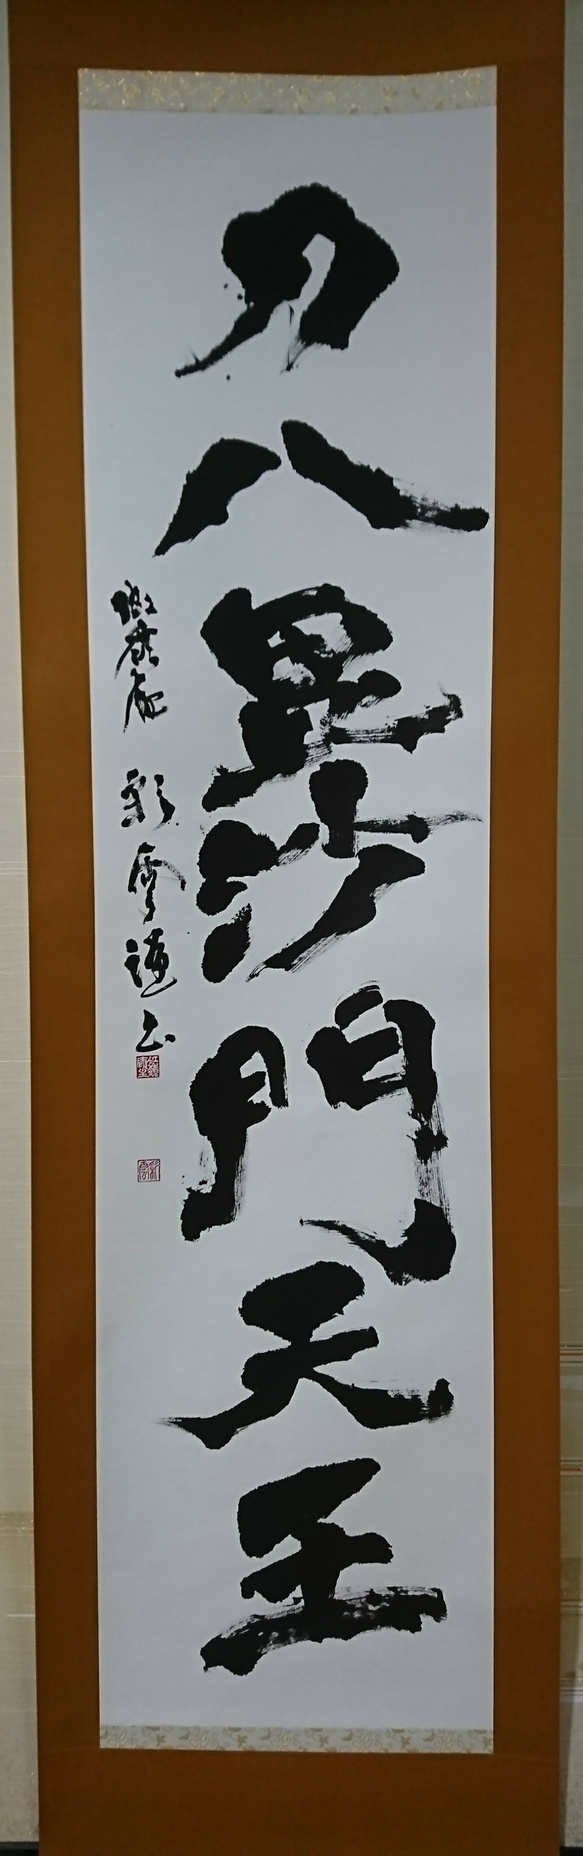 刀八毘沙門天王
彩雲謹書